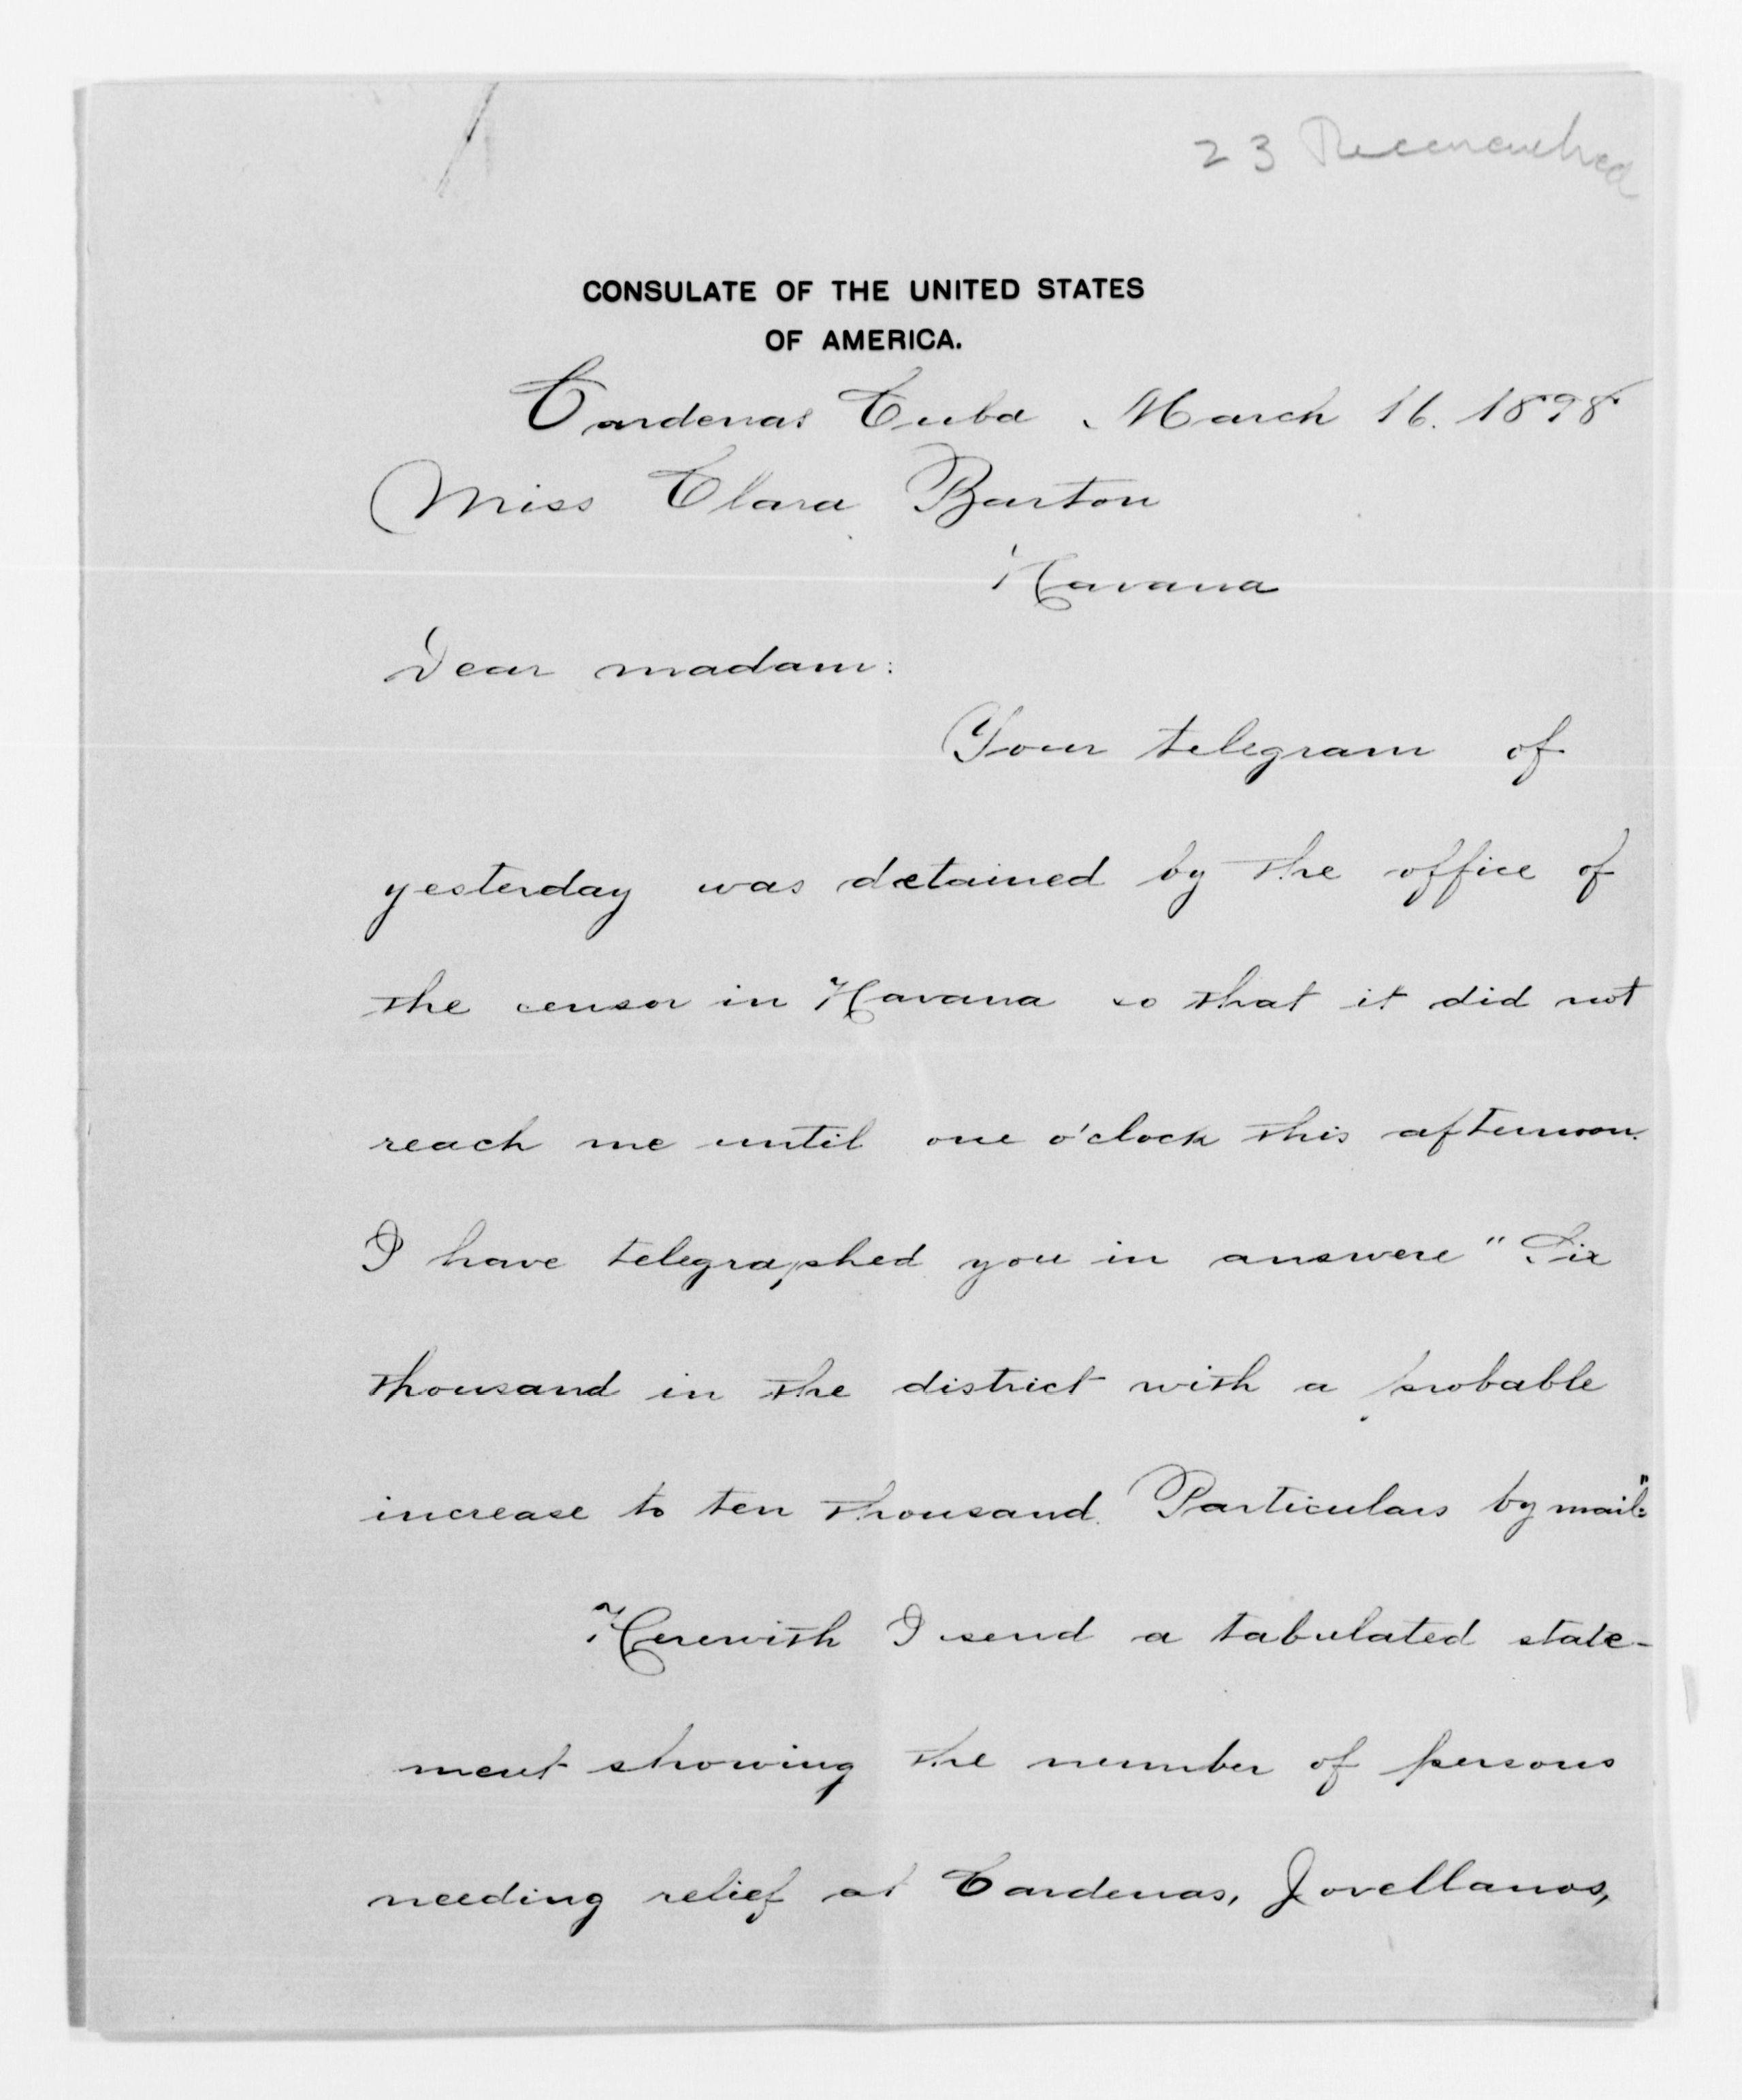 23
CONSULATE OF THE UNITED STATES
OF AMERICA.
Cardenas Cuba, March 16. 1898
Miss Clara Barton
Havana
Dear madam:
Your telegram of
yesterday was detained by the office of
the censor in Havana so that it did not
reach me until one o'clock this afternoon.
I have telegraphed you in answere "Six
thousand in the district with a probable
increase to ten thousand. Particulars by mail."
Herewith I send a tabulated state-
ment showing the number of persons
needing relief at Cardenas, Jovellanos,